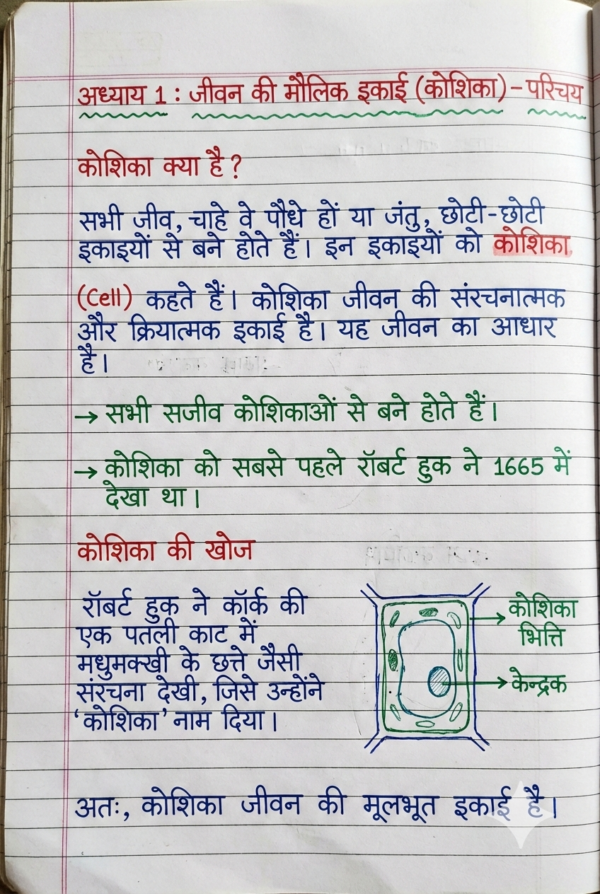 अध्याय 1 : जीवन की मौलिक इकाई (कोशिका) – परिचय
कोशिका क्या है ?
सभी जीव, चाहे वे पौधे हों या जंतु, छोटी-छोटी
इकाइयों से बने होते हैं। इन इकाइयों को कोशिका
(Cell) कहते हैं। कोशिका जीवन की संरचनात्मक
और क्रियात्मक इकाई है। यह जीवन का आधार
है।
→ सभी सजीव कोशिकाओं से बने होते हैं।
→ कोशिका को सबसे पहले रॉबर्ट हुक ने 1665 में
देखा था।
कोशिका की खोज
रॉबर्ट हुक ने कॉर्क की
एक पतली काट में
मधुमक्खी के छत्ते जैसी
संरचना देखी, जिसे उन्होंने
‘कोशिका’ नाम दिया।
कोशिका
भित्ति
केन्द्रक
अतः, कोशिका जीवन की मूलभूत इकाई है।